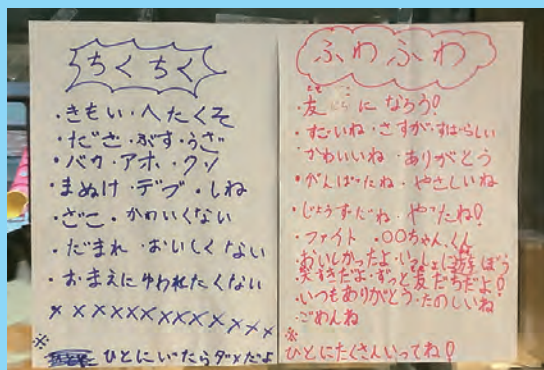 ちくちく
・きもい・へたくそ
・ださ・ぶす・うざ
・バカ・アホ・クソ
・まぬけ・デブ・しね
・ざこ・かわいくない
・だまれ・おいしくない
・おまえにゆわれたくない
×××××××××××××
※
ひとにいったらダメだよ
ふわふわ
・友だちになろう!
・すごいね・さすが・すばらしい
かわいいね・ありがとう
・がんばったね・やさしいね
・じょうずだね・やったね!
・ファイト・〇〇ちゃん、くん
・おいしかったよ・いっしょに遊ぼう
・大すきだよ・ずっと友だちだよ!
・いつもありがとう・たのしいね
・ごめんね
※
ひとにたくさんいってね!